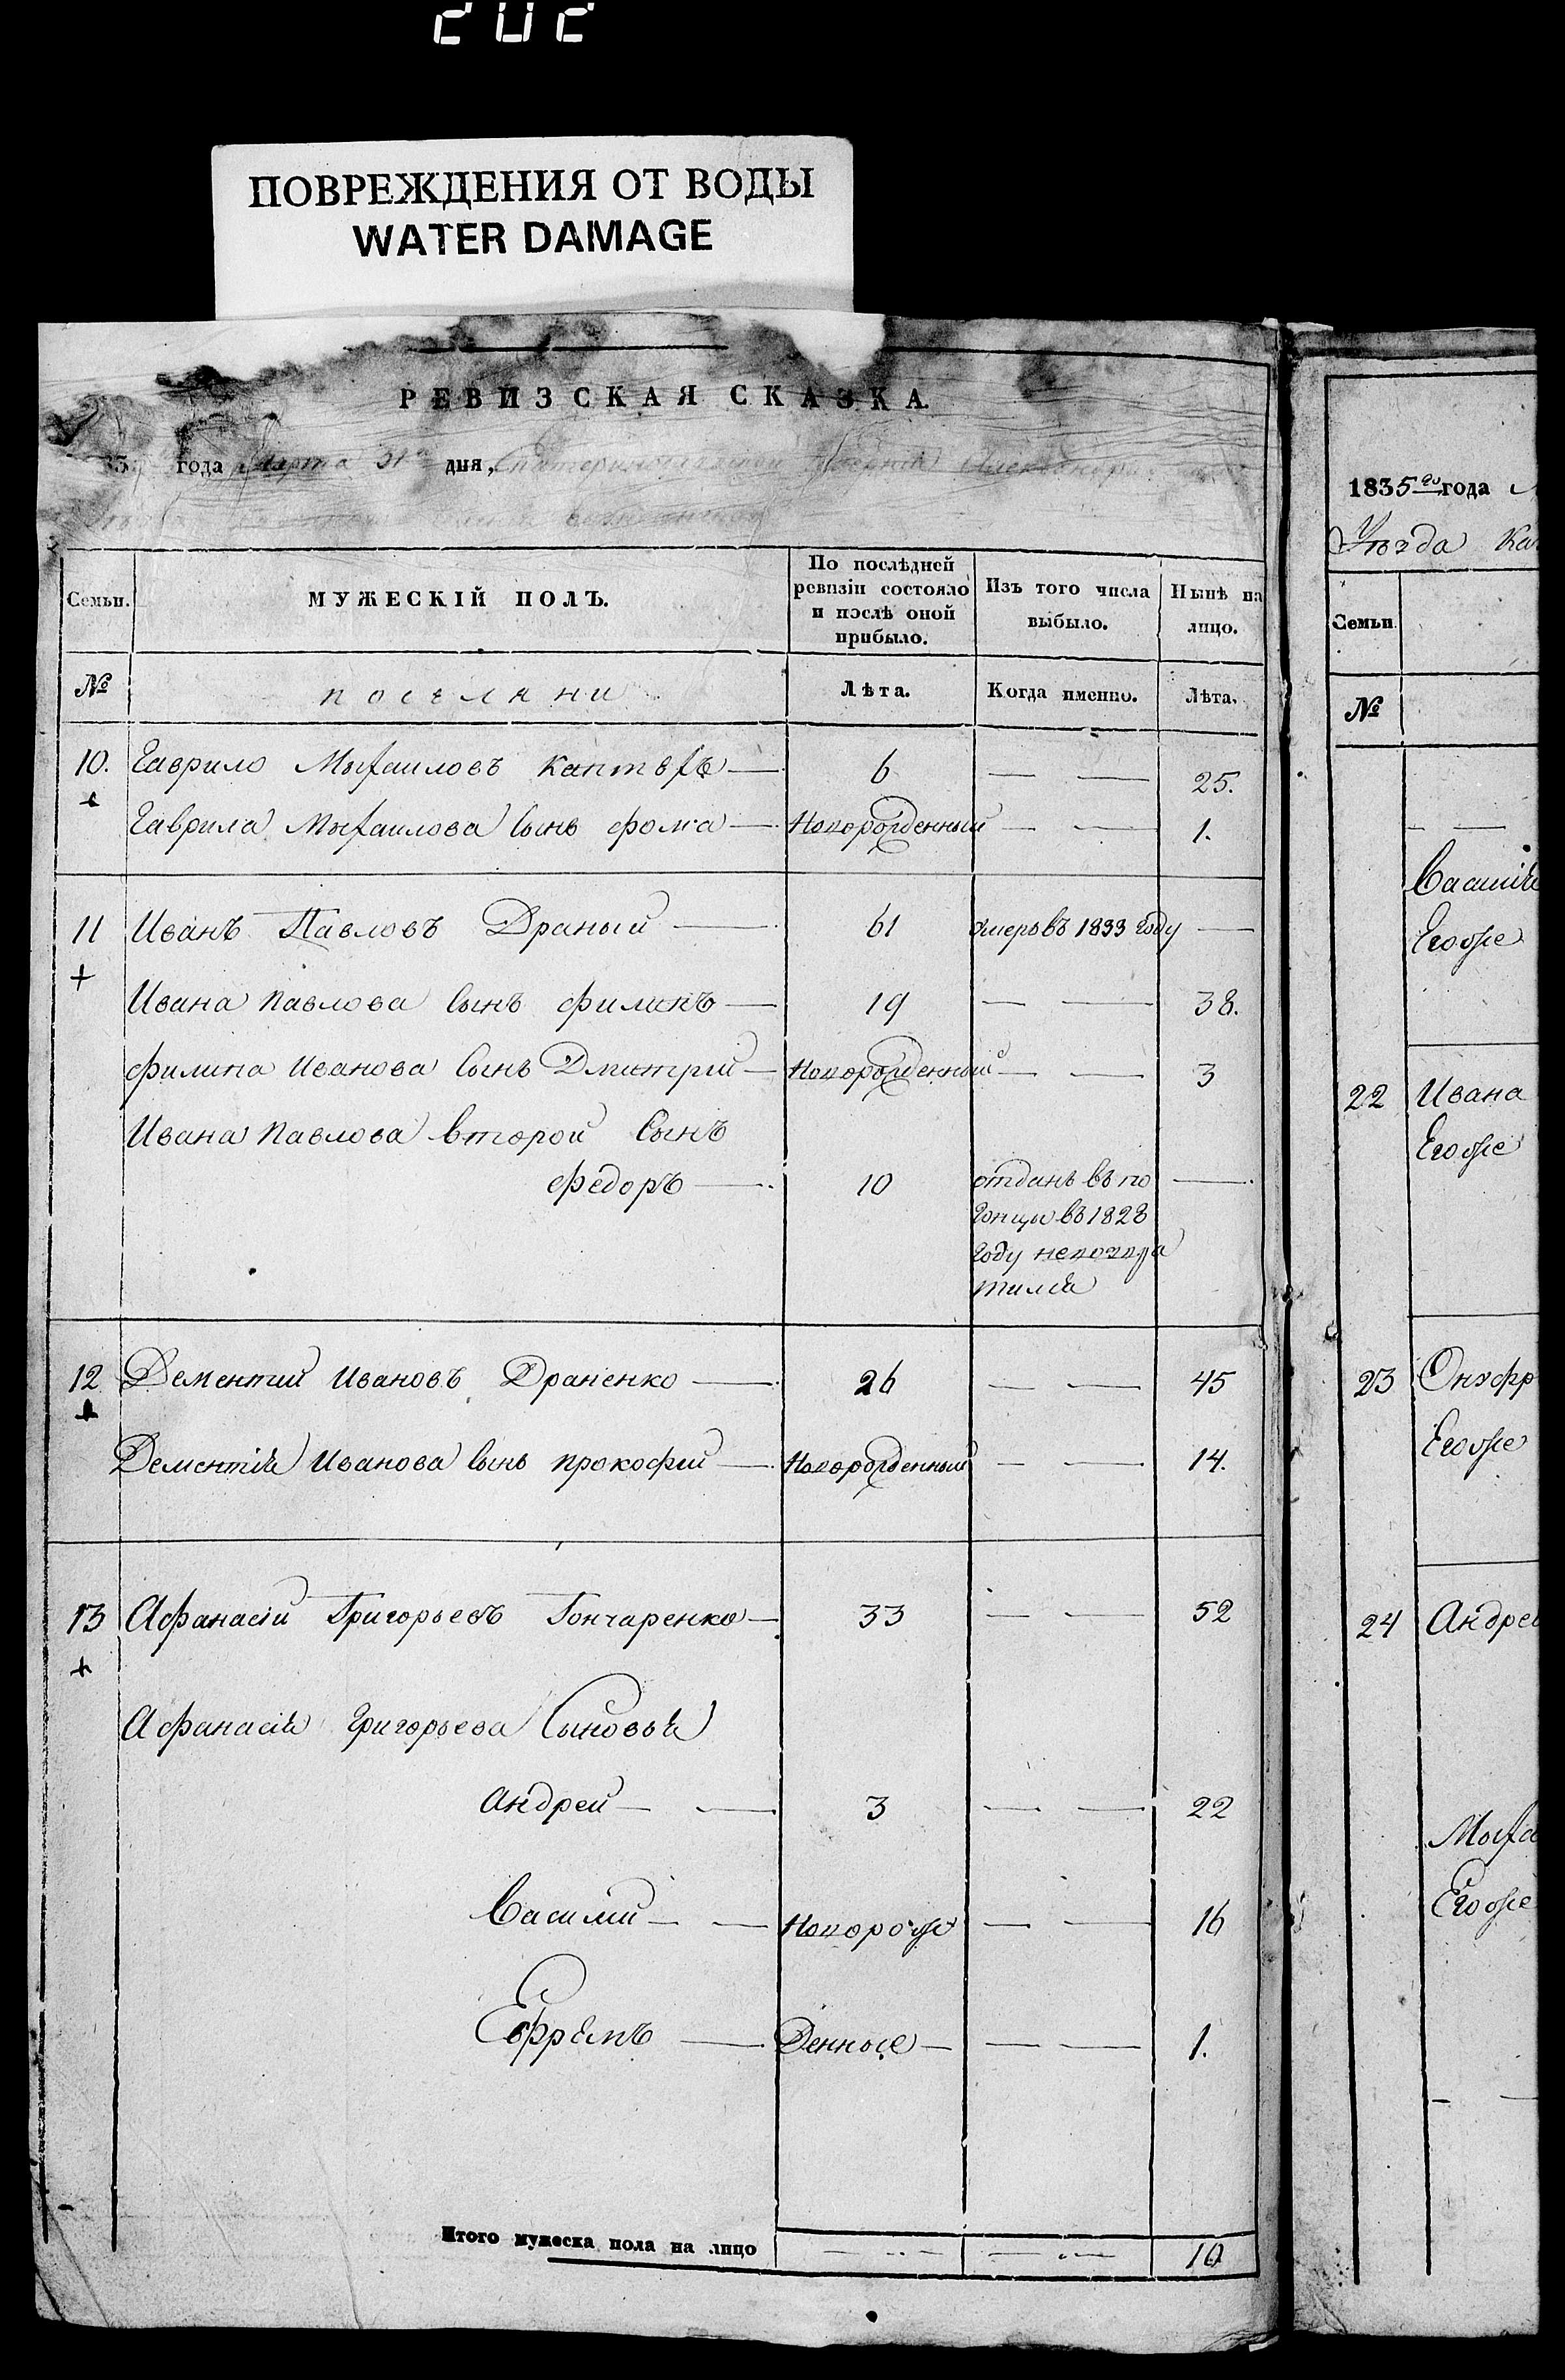 202
ПОВРЕЖДЕНИЯ ОТ ВОДЫ
WATER DAMAGE
РЕВИЗСКАЯ СКАЗКА.
года Марта 31го дня, Екатеринославской Губернии Александрійскаго
Семьи. МУЖЕСКІЙ ПОЛЪ. По послѣдней ревизіи состояло и послѣ оной прибыло. Изъ того числа выбыло. Нынѣ на лицо.
№ поселяни Лѣта. Когда именно. Лѣта.
10. Гаврило Михаиловъ 6 — — 25.
Гаврила Михаилова Сынъ фома — Новорожденный — — 1.
11 Иванъ Павловъ Драный — 61 умеръ въ 1833 году —
Ивана павлова Сынъ филипъ — 19 — — 38.
филипа Иванова Сынъ Дмитрий — Новорожденный — — 3
Ивана павлова второй Сынъ
федоръ — 10 отданъ въ по —
гонцы въ 1828
году невозвра
тился
12 Дементий Ивановъ Драненко — 26 — — 45
Дементія Иванова Сынъ прокофий — Новорожденный — — 14.
13 Афанасій Григорьевъ Гончаренко — 33 — — 52
Афанасія Григорьева Сыновья
Андрей — — 3 — — 22
Василий — — Новорож — — 16
Ефремъ — Денные — — — 1.
Итого мужеска пола на лицо — — — — 10
1835го года
Уѣзда
Семьи.
№
— —
Василія
Егоже
22 Ивана
Егоже
23 Онуфр
Егоже
24 Андрея
Миха
Егоже
— —